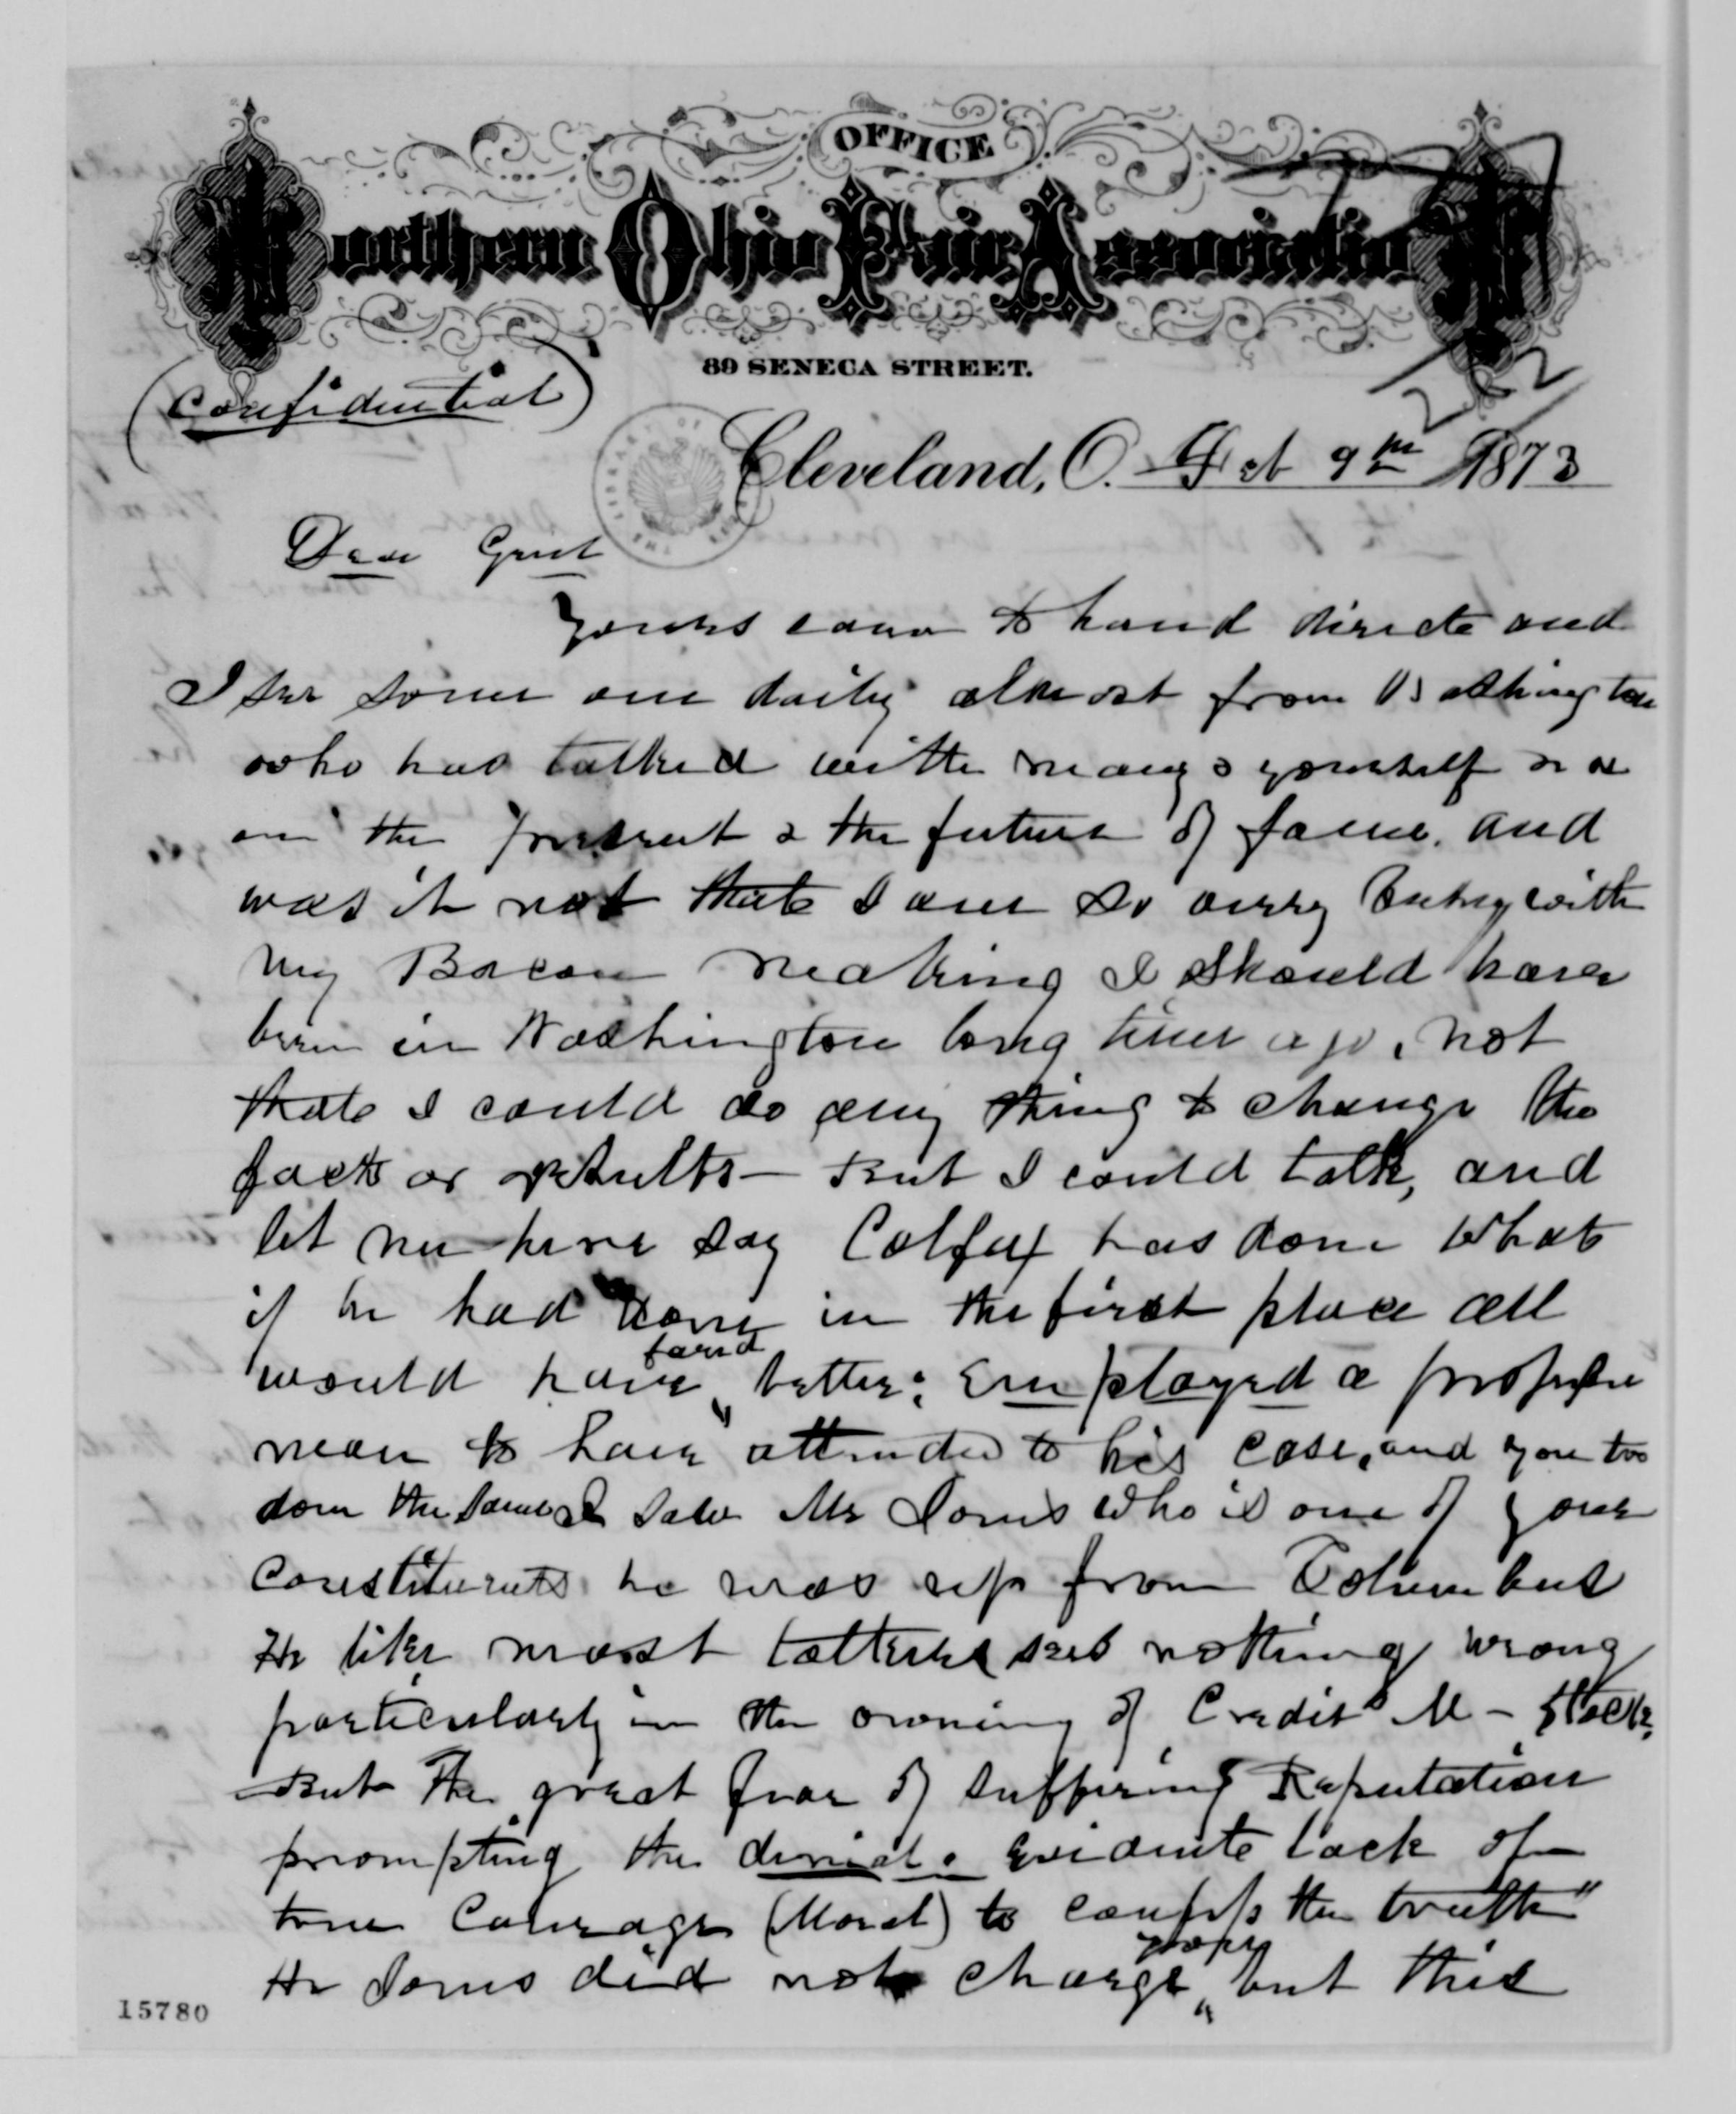 OFFICE
Northern Ohio Fair Association
89 SENECA STREET.
(Confidential)
Cleveland, O. Feb 9th 1873
Dear Genl
Yours came to hand directe and
I see some one daily almost from Washington
who has talked with many & yourself
on the present & the future of same. and
was it not that I am so very busy with
my Bacon making I should have
been in Washington long time ago, not
that I could do any thing to change the
facts or results — But I could talk, and
let me here say Colfax has done What
if he had done in the first place all
would have fared better; Employed a proper
man to have attended to his case, and you too
done the same I saw Mr Jones who is one of your
Constituents he was up from Columbus
He like most talkers sees nothing wrong
particularly in the owning of Credit M - Stock,
But the great fear of suffering Reputation
prompting the denial. Evidente lack of
true Courage (Moral) to confess the truth"
Mr Jones did not charge but this
15780